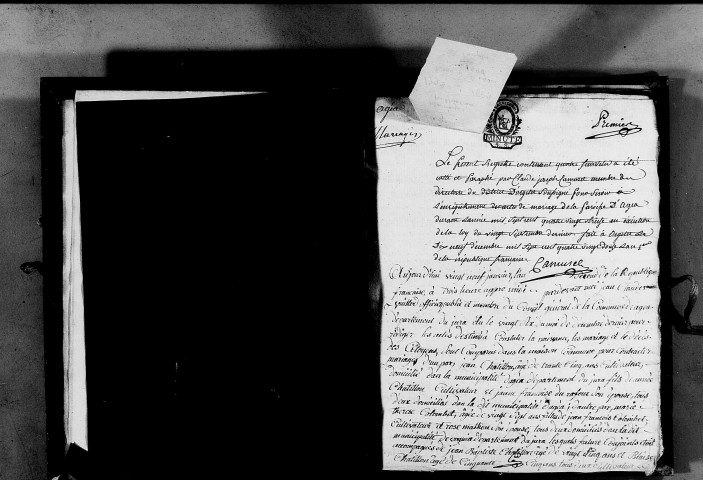 Mariages
Premier
MINUTE
Le present Registre contenant quatre feuillets a été
cotté et paraphé par Claude joseph Camuset membre du
Directoire du district d'orgelet soussigné pour servir à
l'enregistrement des actes de mariage de la paroisse D'agea
durant l'année mil sept cent quatre vingt treize en exécution
de la loy du vingt septembre dernier fait à orgelet le
Dix neuf decembre mil sept cent quatre vingt douze l'an 1er
de la république francaise
Camuset
Aujourd'hui vingt neuf janvier, l'an second de la République
française, à trois heure appre midi par devant moi
officier public et membre du Conseil général de la Commune d'agea
département du jura élu le vingt dix du moi de decembre dernier pour
rédiger les actes destinés à constater la naissance, les mariages et le décès
des Citoyens, sont comparus dans la maison commune pour contracter
mariage d'une par, jean Chatillon, agé de trente cinq ans, cultivateur,
domicilié dans la municipalité d'agea département du jura fils de
Chatillon cultivateur et jeanne françoise son épouse, tous
deux domiciliés dans la dit municipalité d'agea; d'autre par, marie
therese Colombet, agée de vingt sept ans fille de jean françois Colombet,
cultivateur et rose son épouse, tous deux domiciliés dans la dit
municipalité département du jura lesquels future conjoints étoit
accompagnés de jean Baptiste agé de vingt cinq ans et
Chatillon agé de cinquante cinq ans tous deux cultivateur